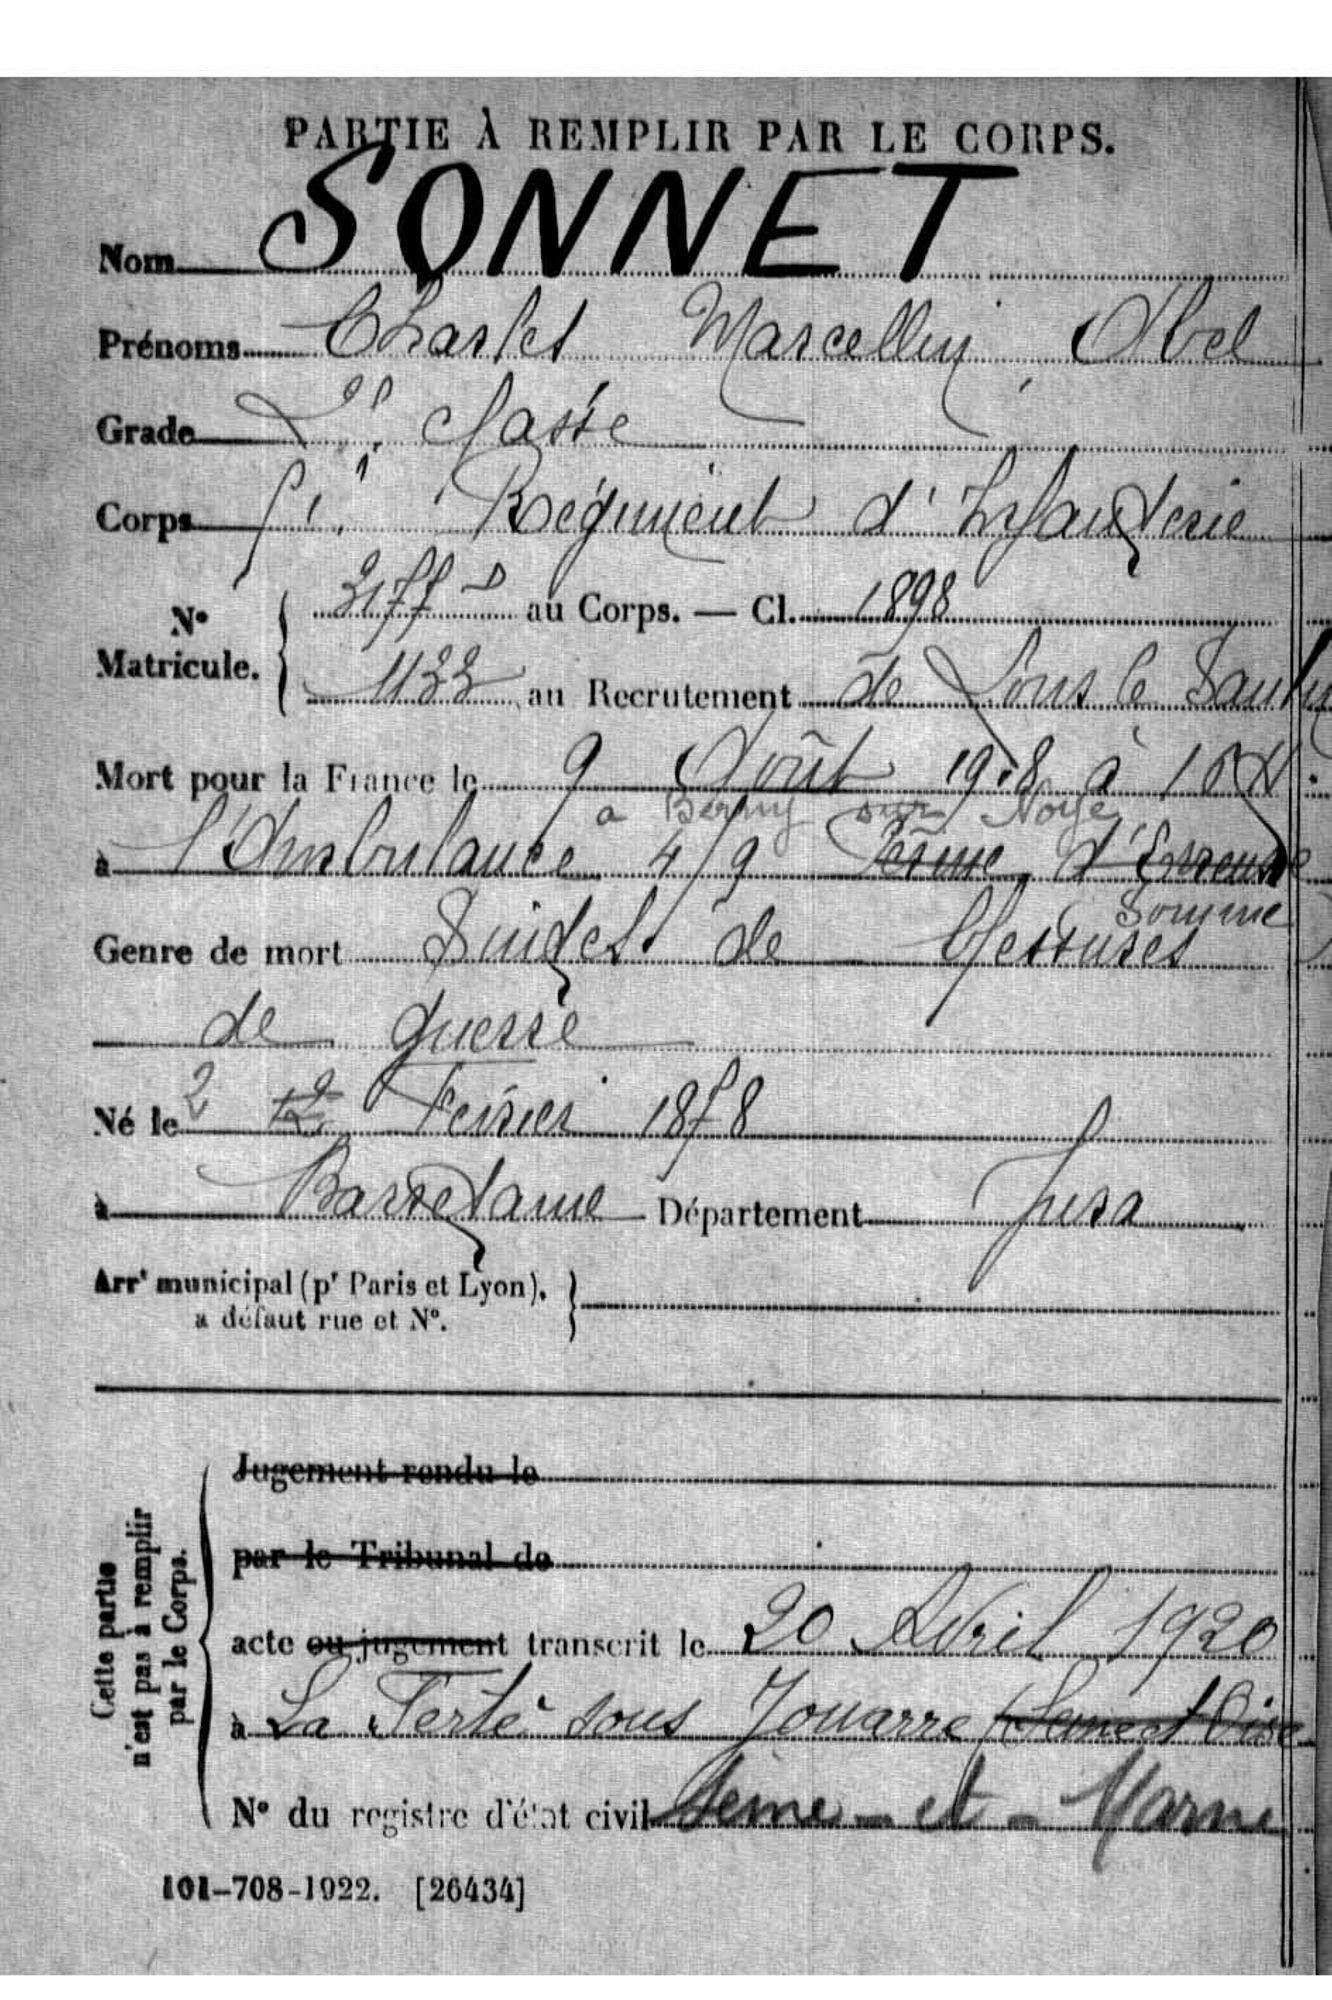 PARTIE À REMPLIR PAR LE CORPS.
Nom SONNET
Prénoms Charles Marcellin, Abel
Grade 2e classe
Corps Régiment d'Infanterie
3177 au Corps. — Cl. 1898
N° Matricule.
1122 au Recrutement de Lons le Saulnier
Mort pour la France le 9 Août 1918 à 15 H
a Berny sur Noye
à l'Ambulance 4/9 Ferme d'
Somme
Genre de mort Suites de blessures
de guerre
Né le 2 12 Février 1878
à Barretaine Département Jura
Arrt municipal (pr Paris et Lyon),
a défaut rue et N°.
Jugement rendu le
par le Tribunal de
Cette partie
n'est pas à remplir
par le Corps.
acte ou jugement transcrit le 20 Avril 1920
à La Ferté sous Jouarre (Seine et Oise
N° du registre d'état civil Seine-et-Marne
101-708-1922. [26434]